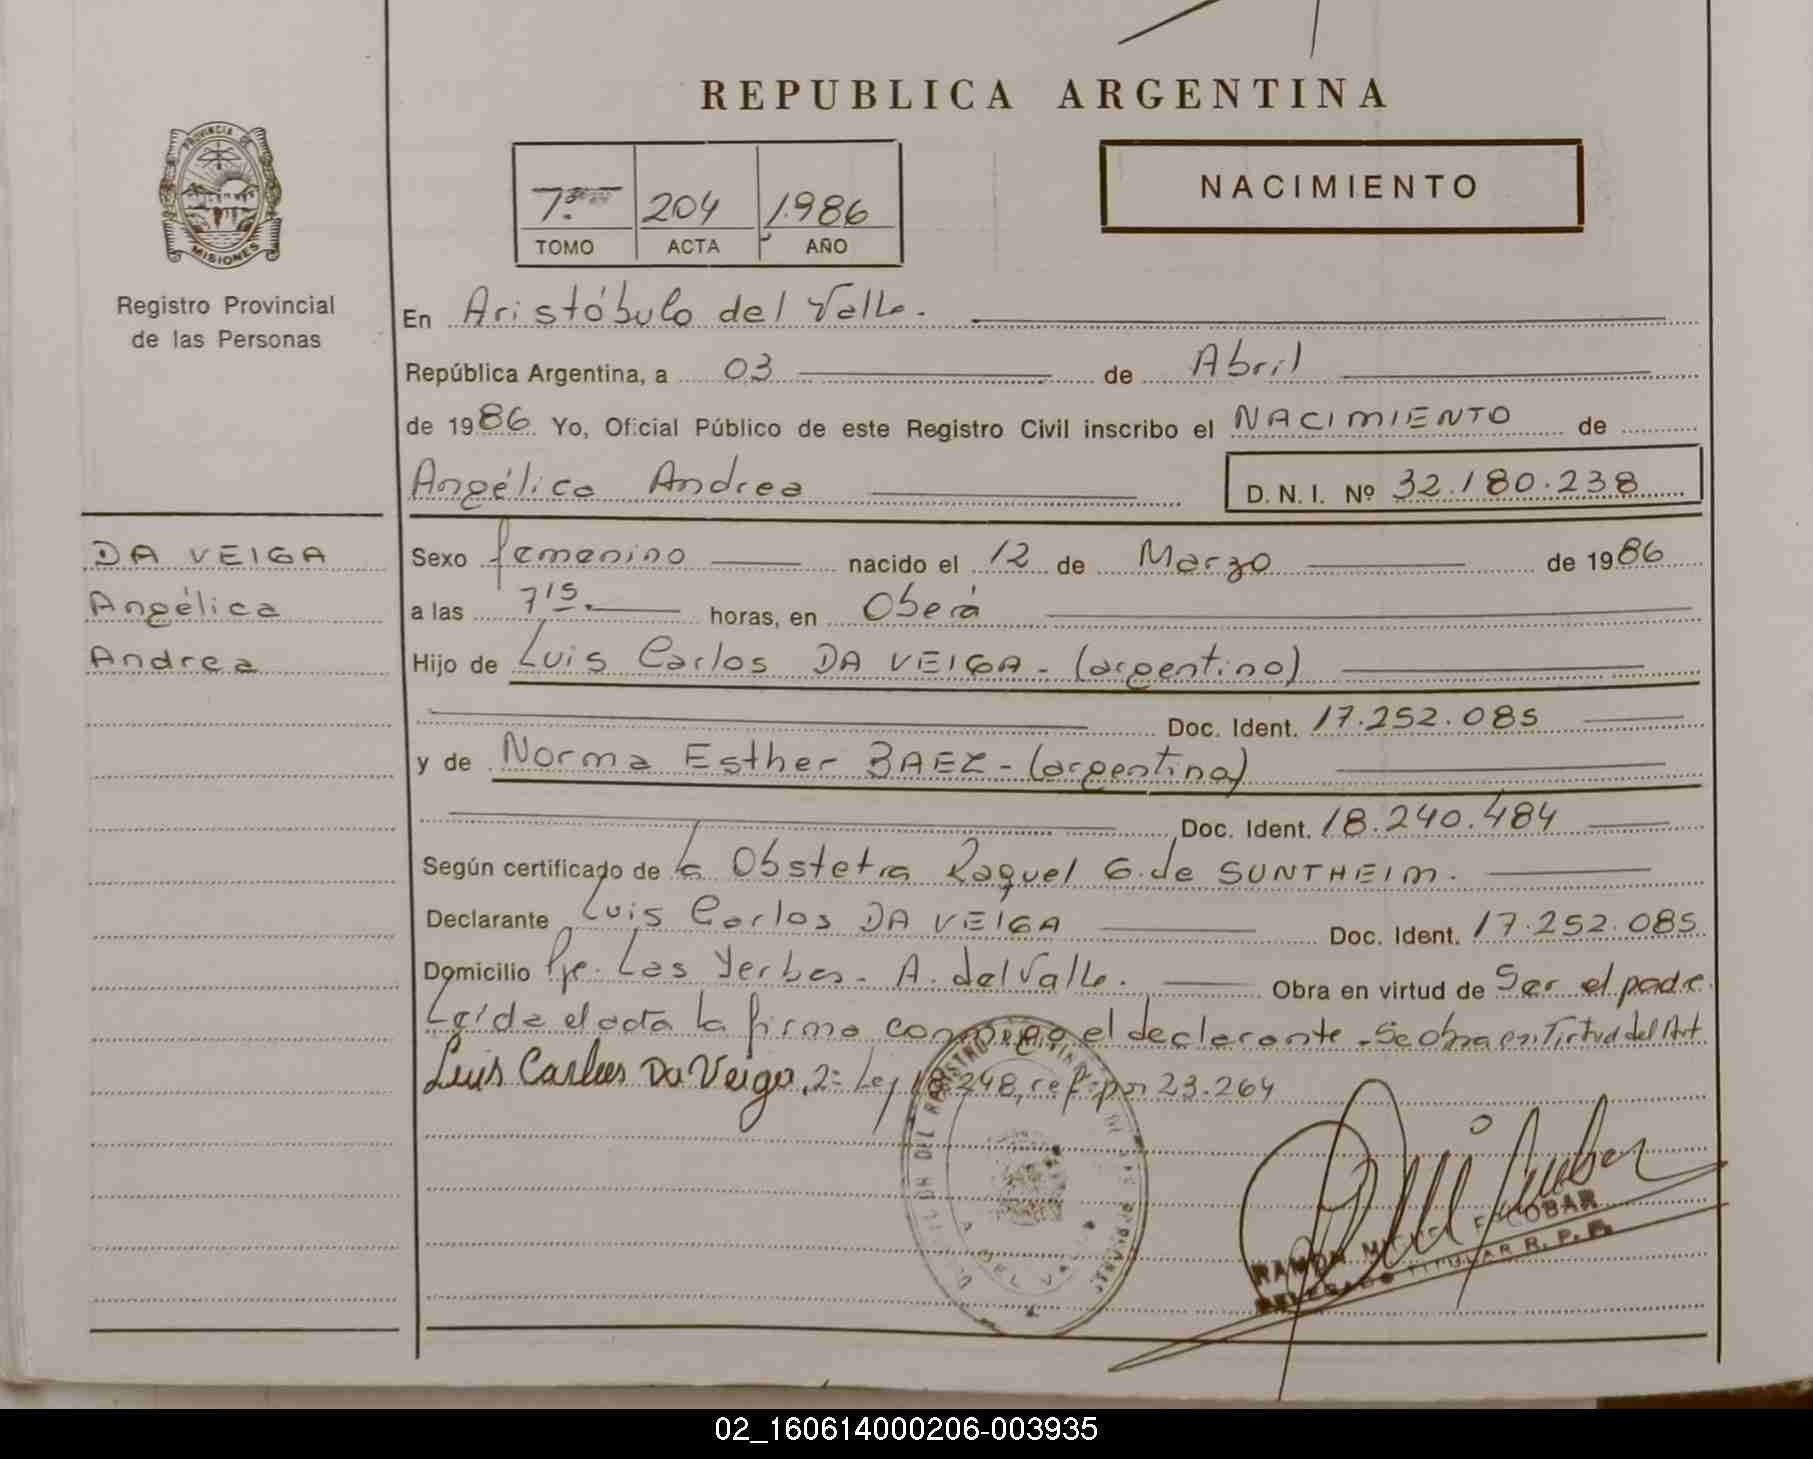 REPUBLICA ARGENTINA
PROVINCIA DE
MISIONES
Registro Provincial
de las Personas
204 1986
TOMO ACTA AÑO
NACIMIENTO
En Aristóbulo del Valle.
República Argentina, a 03 de Abril
de 1986 Yo, Oficial Público de este Registro Civil inscribo el NACIMIENTO de
Angélica Andrea D. N. I. Nº 32.180.238
DA VEIGA
Angélica
Andrea
Sexo femenino nacido el 12 de Marzo de 1986
a las 7 15. horas, en Oberá
Hijo de Luis Carlos DA VEIGA - (argentino)
Doc. Ident. 17.252.085
y de Norma Esther BAEZ - (argentina)
Doc. Ident. 18.240.484
Según certificado de la Obstetra Raquel G. de SUNTHEIM.
Declarante Luis Carlos DA VEIGA Doc. Ident. 17.252.085
Domicilio Pje. Las Yerbas - A. del Valle. Obra en virtud de Ser el padre
Leída el acta la firma conmigo el declarante - Se obra en Virtud del Art.
Luis Carlos Da Veiga 2º Ley 18.248, ref. por 23.264
RAMON MIGUEL ESCOBAR
DELEGADO TITULAR R. P. P.
02_160614000206-003935